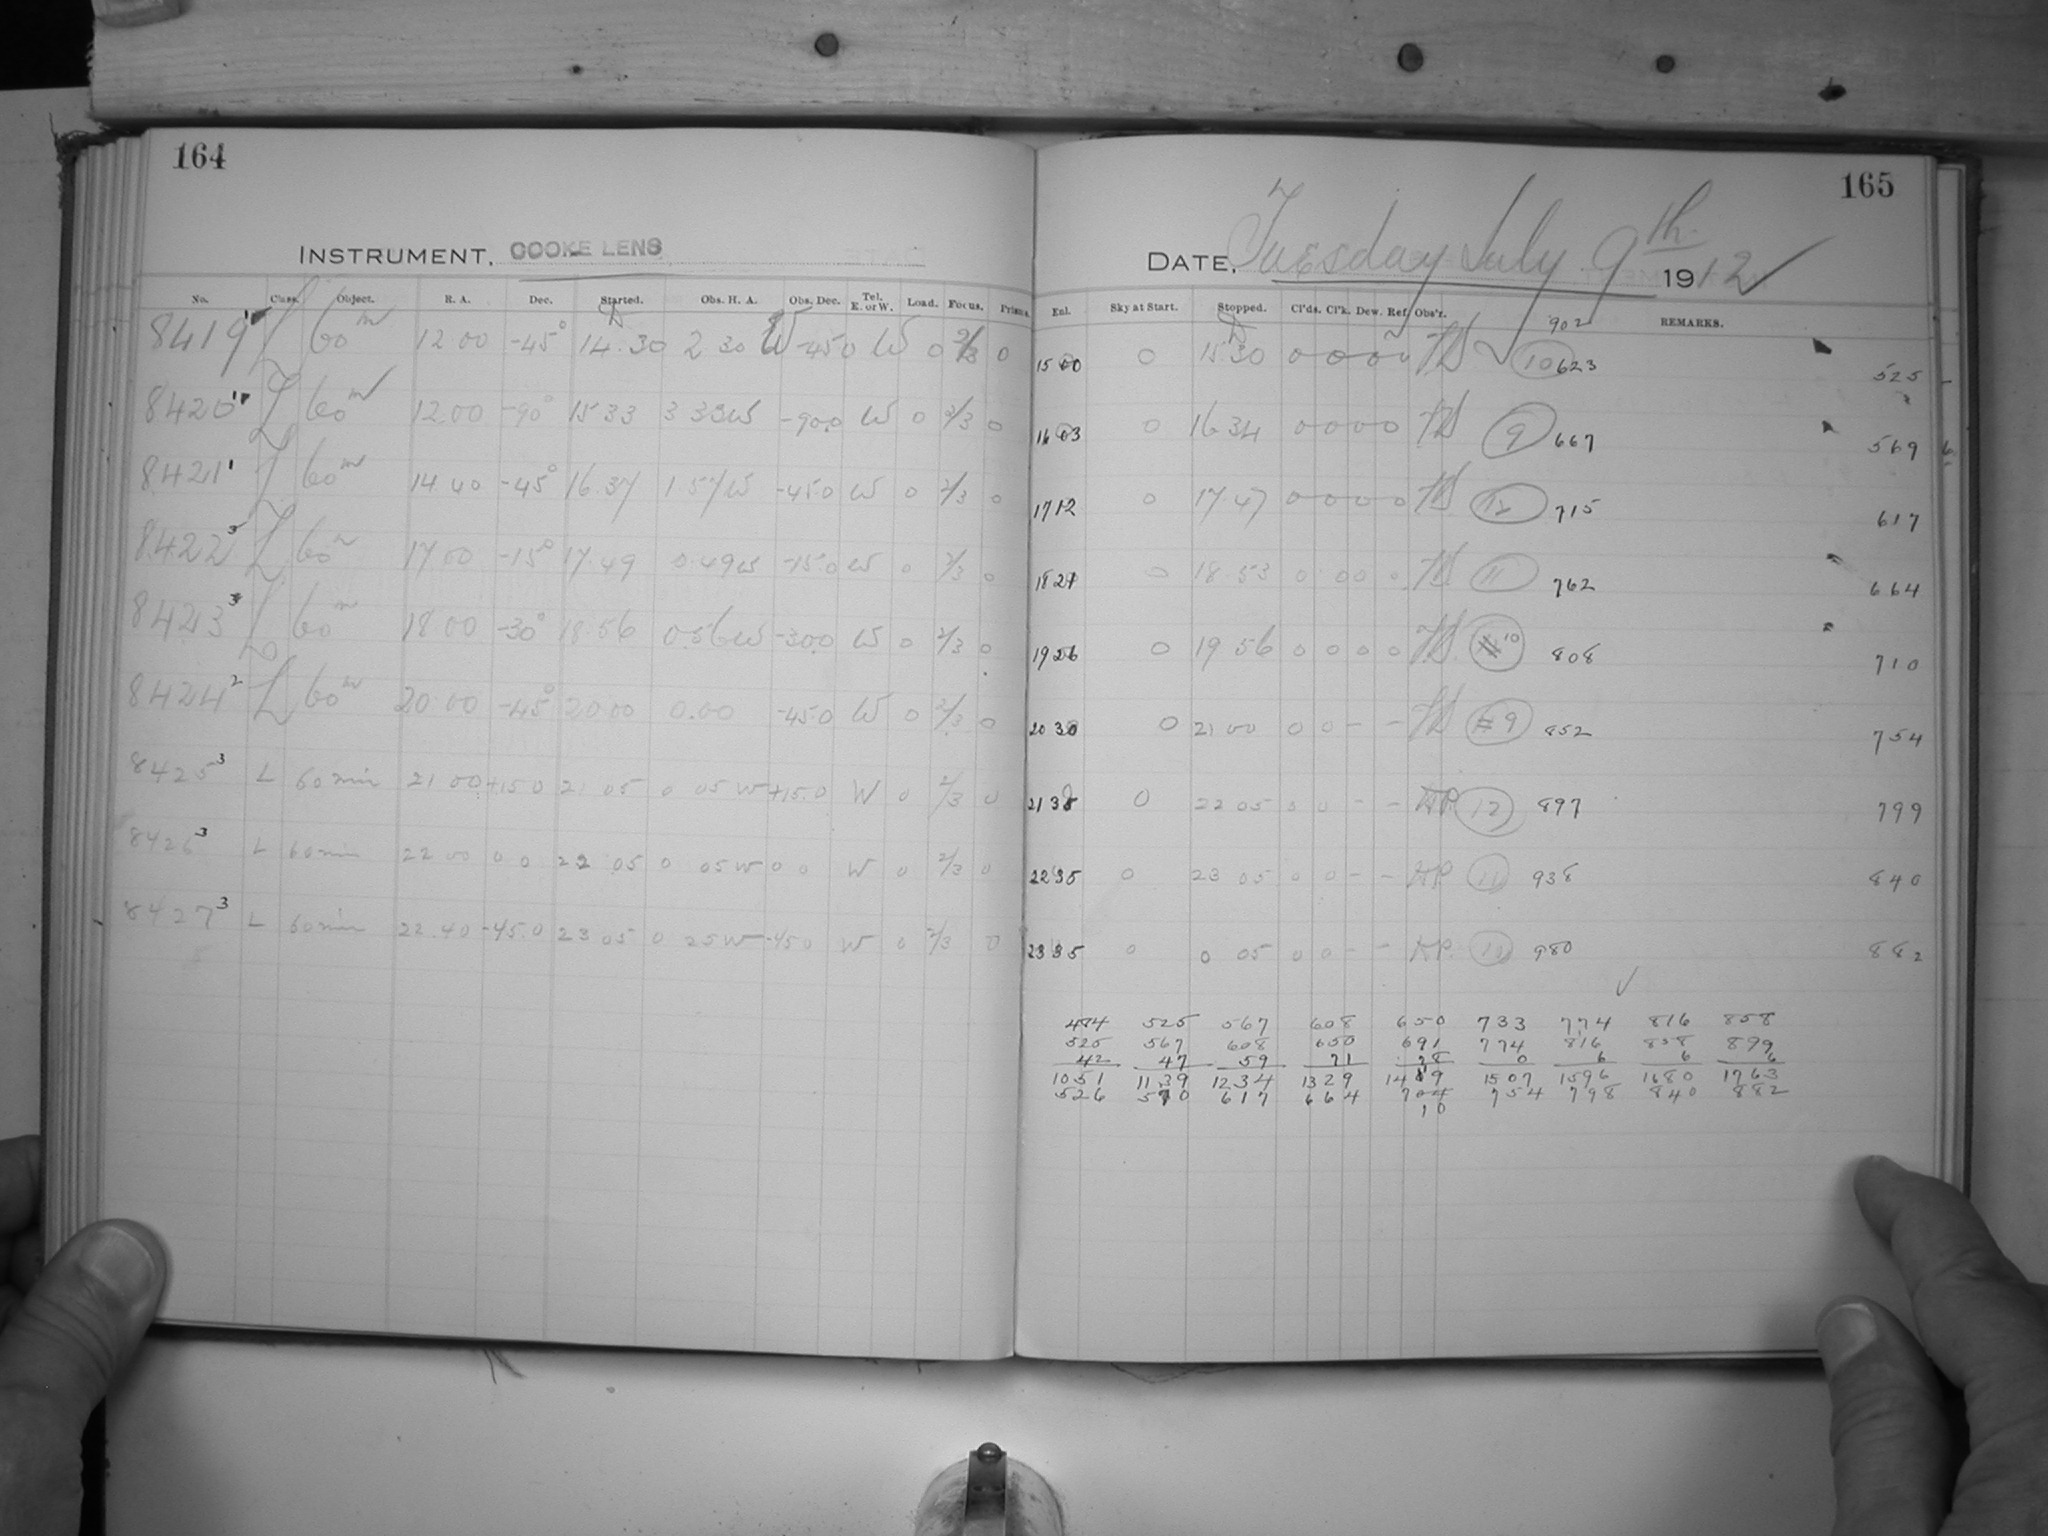 164
INSTRUMENT, COOKE LENS
No. Class. Object. R. A. Dec. Started. Obs. H. A. Obs. Dec. Tel. E. or W. Load. Focus. Prisms.
8419 L 60m 12 00 -45° 14.30 2 30 W -45 0 W 0 2/3 0
8420 L 60m 12.00 -90° 15 33 3 33 W -90.0 W 0 2/3 0
8421 L 60m 14.40 -45° 16.37 1.57 W -45.0 W 0 2/3 0
8422 3 L 60m 17.00 -15° 17.49 0.49 W -15.0 W 0 2/3 0
8423 3 L 60m 18.00 -30° 18.56 0.56 W -30.0 W 0 2/3 0
8424 2 L 60m 20.00 -45° 20.00 0.00 -45.0 W 0 2/3 0
8425 3 L 60 min 21 00 +15 0 21 05 0 05 W +15.0 W 0 2/3 0
8426 3 L 60 min 22 00 0 0 22 05 0 05 W 0 0 W 0 2/3 0
8427 3 L 60 min 22.40 -45.0 23 05 0 25 W -45 0 W 0 2/3 0
165
DATE, Tuesday July 9th 1912
Enl. Sky at Start. Stopped. Cl'ds. Cl'k. Dew. Ref. Obs'r. REMARKS.
902
15 00 0 15 30 0 0 0 0 10 623 525
16 03 0 16 34 0 0 0 0 9 667 569
17 12 0 17.47 0 0 0 0 12 715 617
18 21 0 18.53 0 0 0 0 11 762 664
19 26 0 19 56 0 0 0 0 10 808 710
20 30 0 21 00 0 0 - - 9 852 754
21 35 0 22 05 0 0 - - 12 897 799
22 35 0 23 05 0 0 - - 11 938 840
23 35 0 0 05 0 0 - - 980 882
484 525 567 608 650 733 774 816 858
525 567 608 650 691 774 816 858 899
42 47 59 71 78 0 6 6 6
1051 1139 1234 1329 1419 1507 1596 1680 1763
526 570 617 664 704 754 798 840 882
10